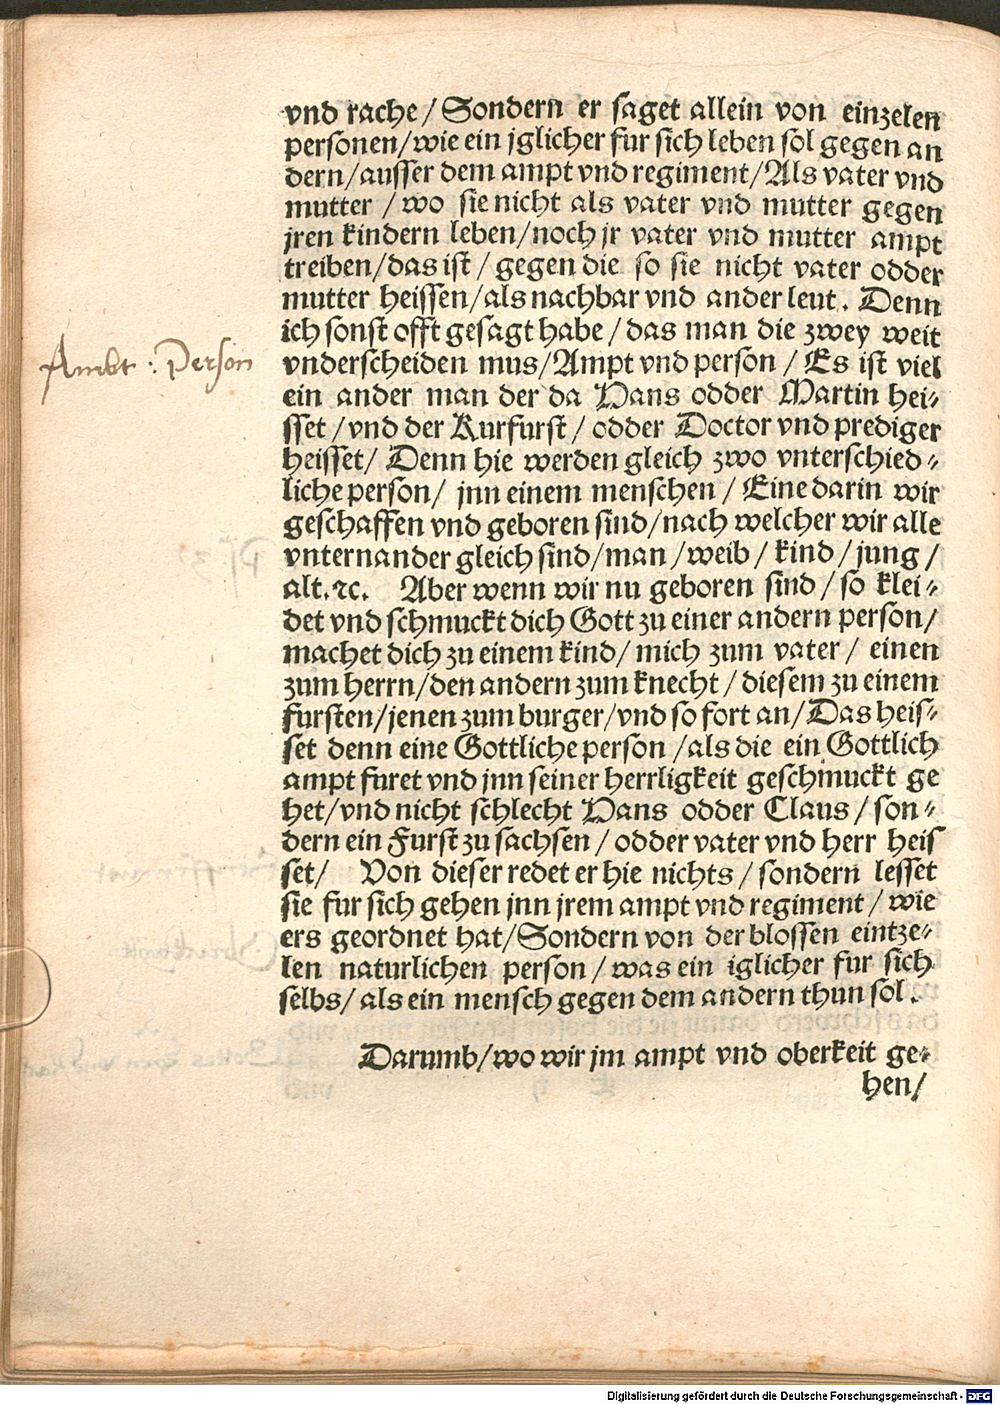 vnd rache / Sondern er saget allein von einzelen
personen / wie ein jglicher fur sich leben sol gegen an
dern / ausser dem ampt vnd regiment / Als vater vnd
mutter / wo sie nicht als vater vnd mutter gegen
jren kindern leben / noch jr vater vnd mutter ampt
treiben / das ist / gegen die so sie nicht vater odder
mutter heissen / als nachbar vnd ander leut. Denn
ich sonst offt gesagt habe / das man die zwey weit
vnderscheiden mus / Ampt vnd person / Es ist viel
Ambt : Person
ein ander man der da Hans odder Martin hei-
sset / vnd der Kurfurst / odder Doctor vnd prediger
heisset / Denn hie werden gleich zwo vnterschied-
liche person / jnn einem menschen / Eine darin wir
geschaffen vnd geboren sind / nach welcher wir alle
vnternander gleich sind / man / weib / kind / jung /
alt. ꝛc. Aber wenn wir nu geboren sind / so klei-
det vnd schmuckt dich Gott zu einer andern person /
machet dich zu einem kind / mich zum vater / einen
zum herrn / den andern zum knecht / diesem zu einem
fursten / jenen zum burger / vnd so fort an / Das heis-
set denn eine Gottliche person / als die ein Gottlich
ampt furet vnd jnn seiner herrligkeit geschmuckt ge
het / vnd nicht schlecht Hans odder Claus / son-
dern ein Furst zu sachsen / odder vater vnd herr heis
set / Von dieser redet er hie nichts / sondern lesset
sie fur sich gehen jnn jrem ampt vnd regiment / wie
ers geordnet hat / Sondern von der blossen eintze-
len naturlichen person / was ein iglicher fur sich
selbs / als ein mensch gegen dem andern thun sol.
Darumb / wo wir jm ampt vnd oberkeit ge-
hen /
Digitalisierung gefördert durch die Deutsche Forschungsgemeinschaft - DFG